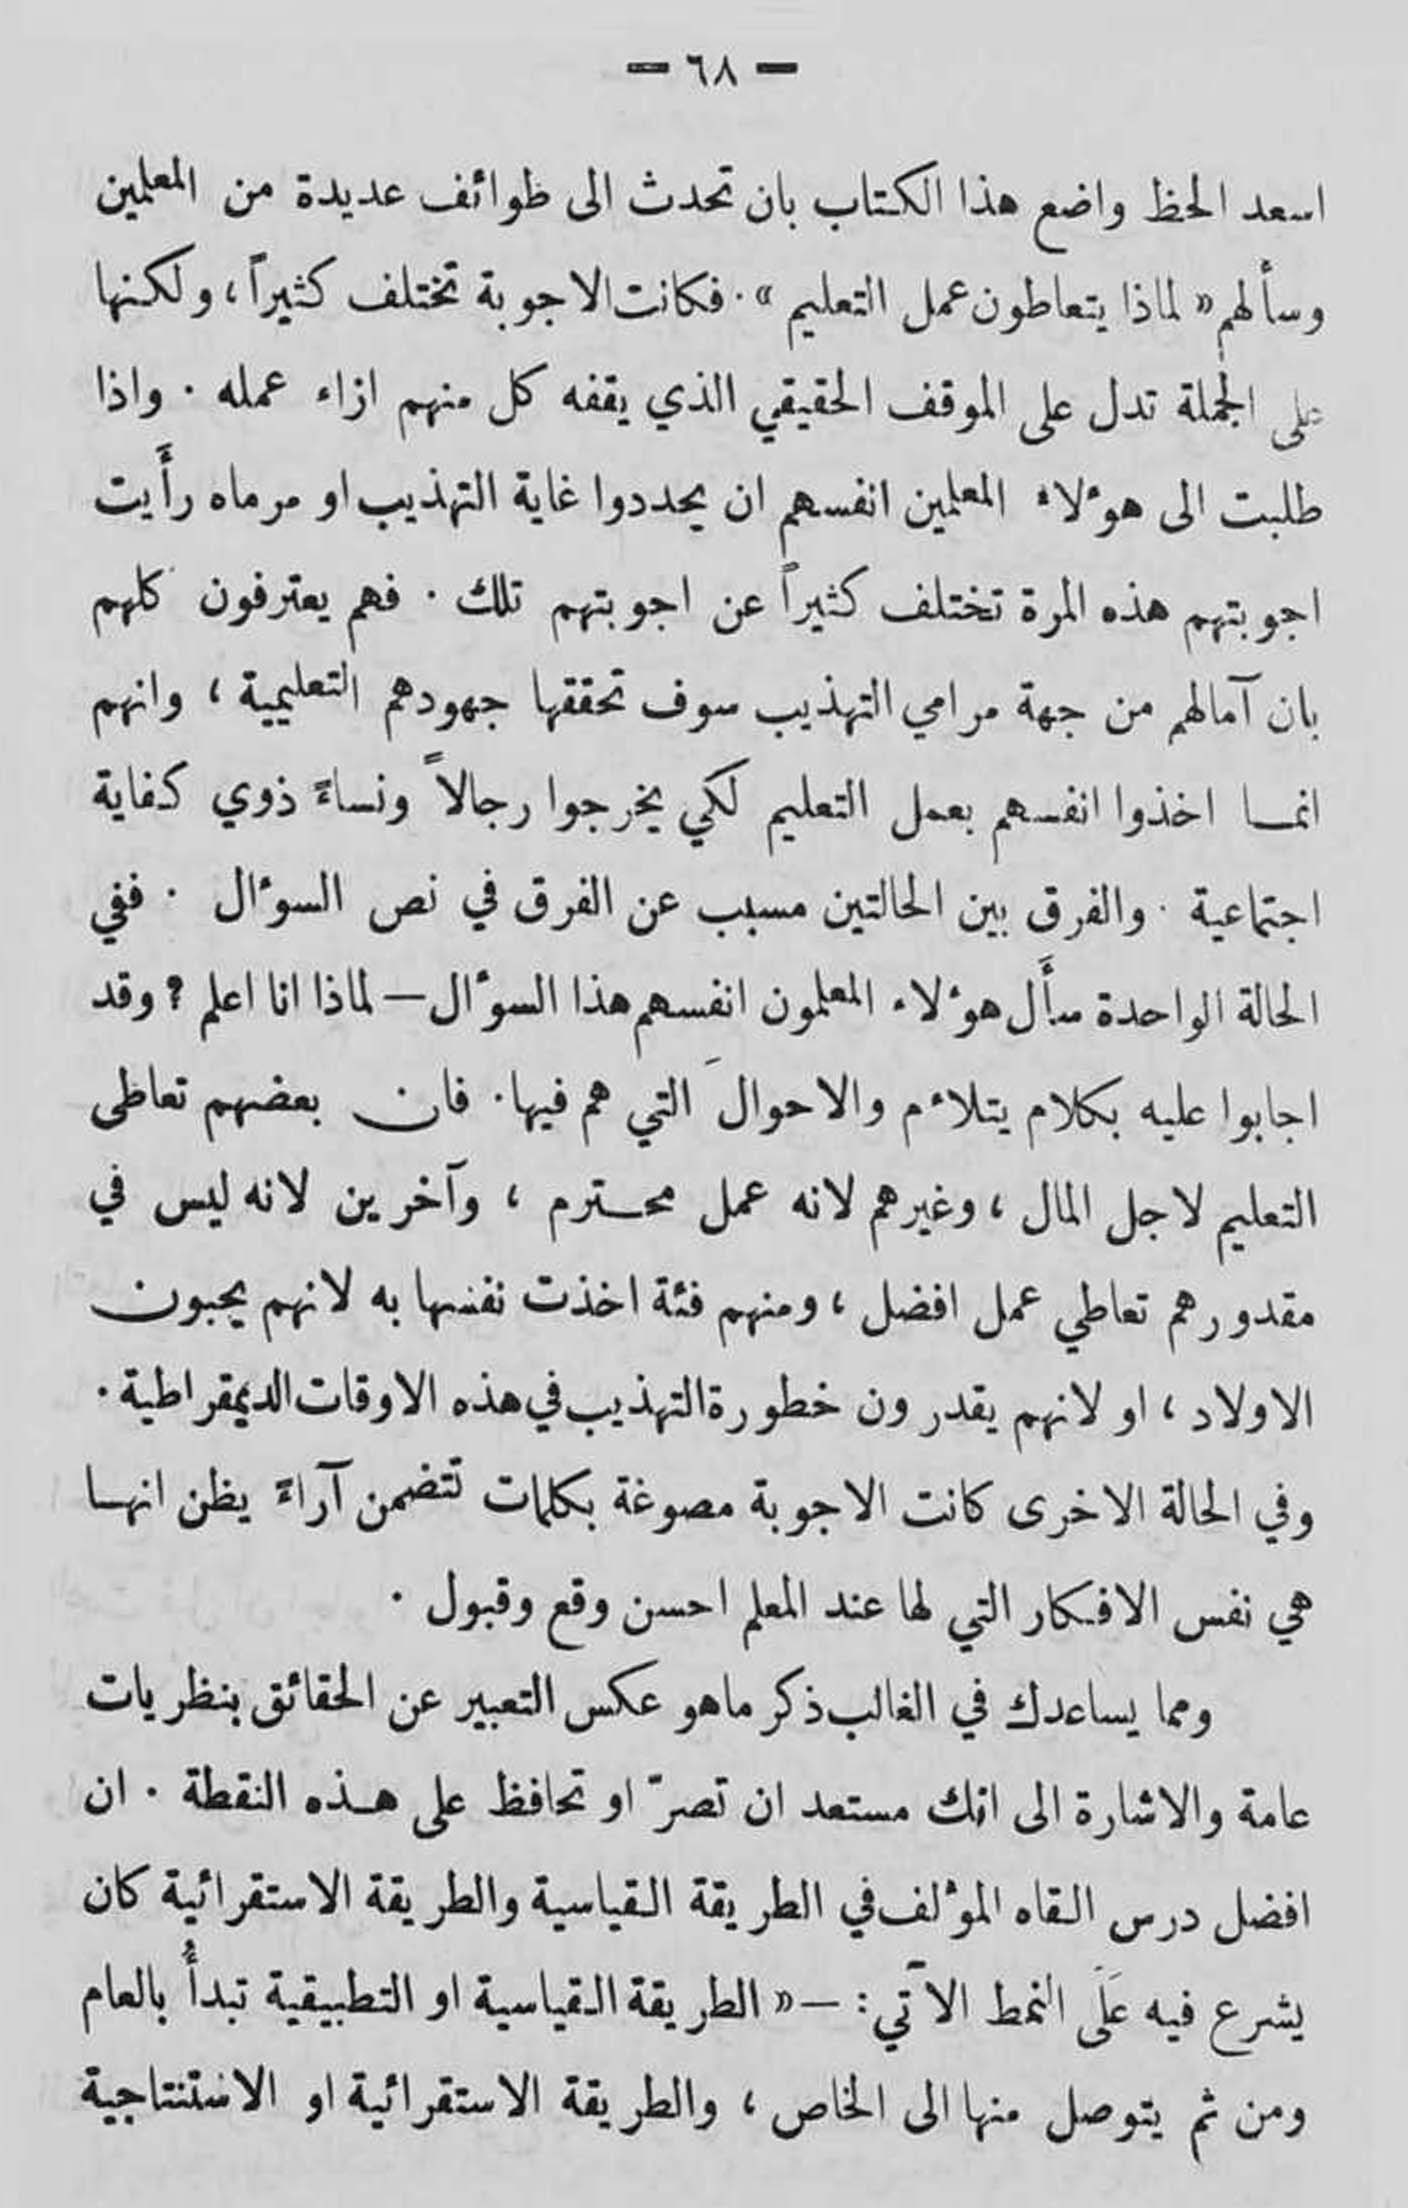 — ٦٨ —
اسعد الحظ واضع هذا الكتاب بان تحدث الى ظوائف عديدة من المعلمين
وسألهم « لماذا يتعاطون عمل التعليم » . فكانت الاجوبة تختلف كثيراً ، ولكنها
على الجملة تدل على الموقف الحقيقي الذي يقفه كل منهم ازاء عمله . واذا
طلبت الى هوٴلاء المعلمين انفسهم ان يحددوا غاية التهذيب او مرماه رأَيت
اجوبتهم هذه المرة تختلف كثيراً عن اجوبتهم تلك . فهم يعترفون كلهم
بان آمالهم من جهة مرامي التهذيب سوف تحققها جهودهم التعليمية ، وانهم
انما اخذوا انفسهم بعمل التعليم لكي يخرجوا رجالاً ونساءً ذوي كفاية
اجتماعية . والفرق بين الحالتين مسبب عن الفرق في نص السوٴال . ففي
الحالة الواحدة سأَل هوٴلاء المعلمون انفسهم هذا السوٴال — لماذا انا اعلم ؟ وقد
اجابوا عليه بكلام يتلاءم والاحوال التي هم فيها . فان بعضهم تعاطى
التعليم لاجل المال ، وغيرهم لانه عمل محترم ، وآخرين لانه ليس في
مقدورهم تعاطي عمل افضل ، ومنهم فئة اخذت نفسها به لانهم يحبون
الاولاد ، او لانهم يقدرون خطورة التهذيب في هذه الاوقات الديمقراطية .
وفي الحالة الاخرى كانت الاجوبة مصوغة بكلمات تتضمن آراءً يظن انها
هي نفس الافكار التي لها عند المعلم احسن وقع وقبول .
ومما يساعدك في الغالب ذكر ماهو عكس التعبير عن الحقائق بنظريات
عامة والاشارة الى انك مستعد ان تصرّ او تحافظ على هذه النقطة . ان
افضل درس القاه الموٴلف في الطريقة القياسية والطريقة الاستقرائية كان
يشرع فيه عَلَى النمط الآتي : — « الطريقة القياسية او التطبيقية تبدأُ بالعام
ومن ثم يتوصل منها الى الخاص ، والطريقة الاستقرائية او الاستنتاجية